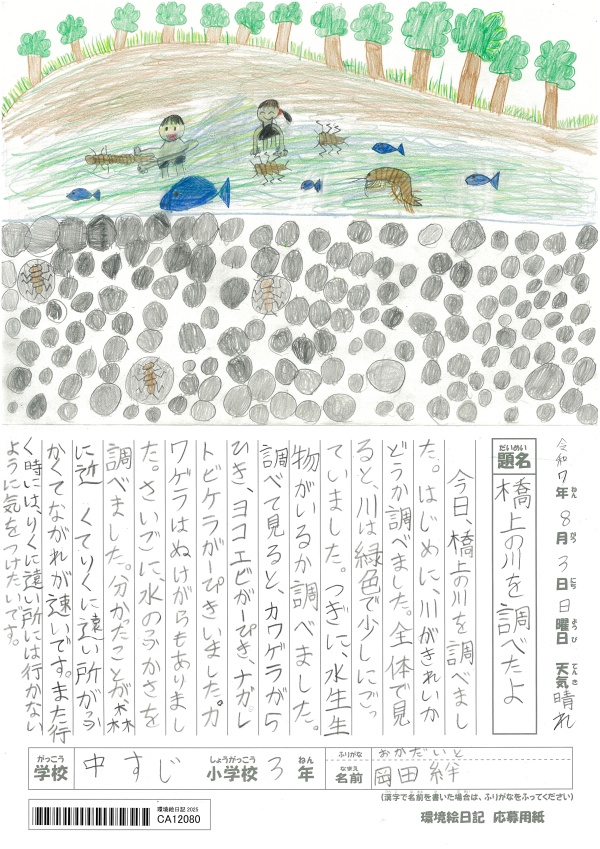 令和7年8月3日日曜日 天気晴れ
ねん がつ にち ようび てんき
だいめい
題名 橋上の川を調べたよ
今日、橋上の川を調べまし
た。はじめに、川がきれいか
どうか調べました。全体で見
ると、川は緑色で少しにごっ
ていました。つぎに、水生生
物がいるか調べました。
調べて見ると、カワゲラが5
ひき、ヨコエビが一ぴき、ナガレ
トビケラが一ぴきいました。カ
ワゲラはぬけがらもありまし
た。さいごに、水のふかさを
調べました。分かったことが、森
に近くてりくに遠い所がふ
かくてながれが速いです。また行
く時には、りくに遠い所には行かない
ように気をつけたいです。
がっこう しょうがっこう ねん ふりがな おかだいと
学校 中すじ 小学校 3年 なまえ 名前 岡田絆
(漢字で名前を書いた場合は、ふりがなをふってください)
環境絵日記 2025
CA12080
環境絵日記 応募用紙